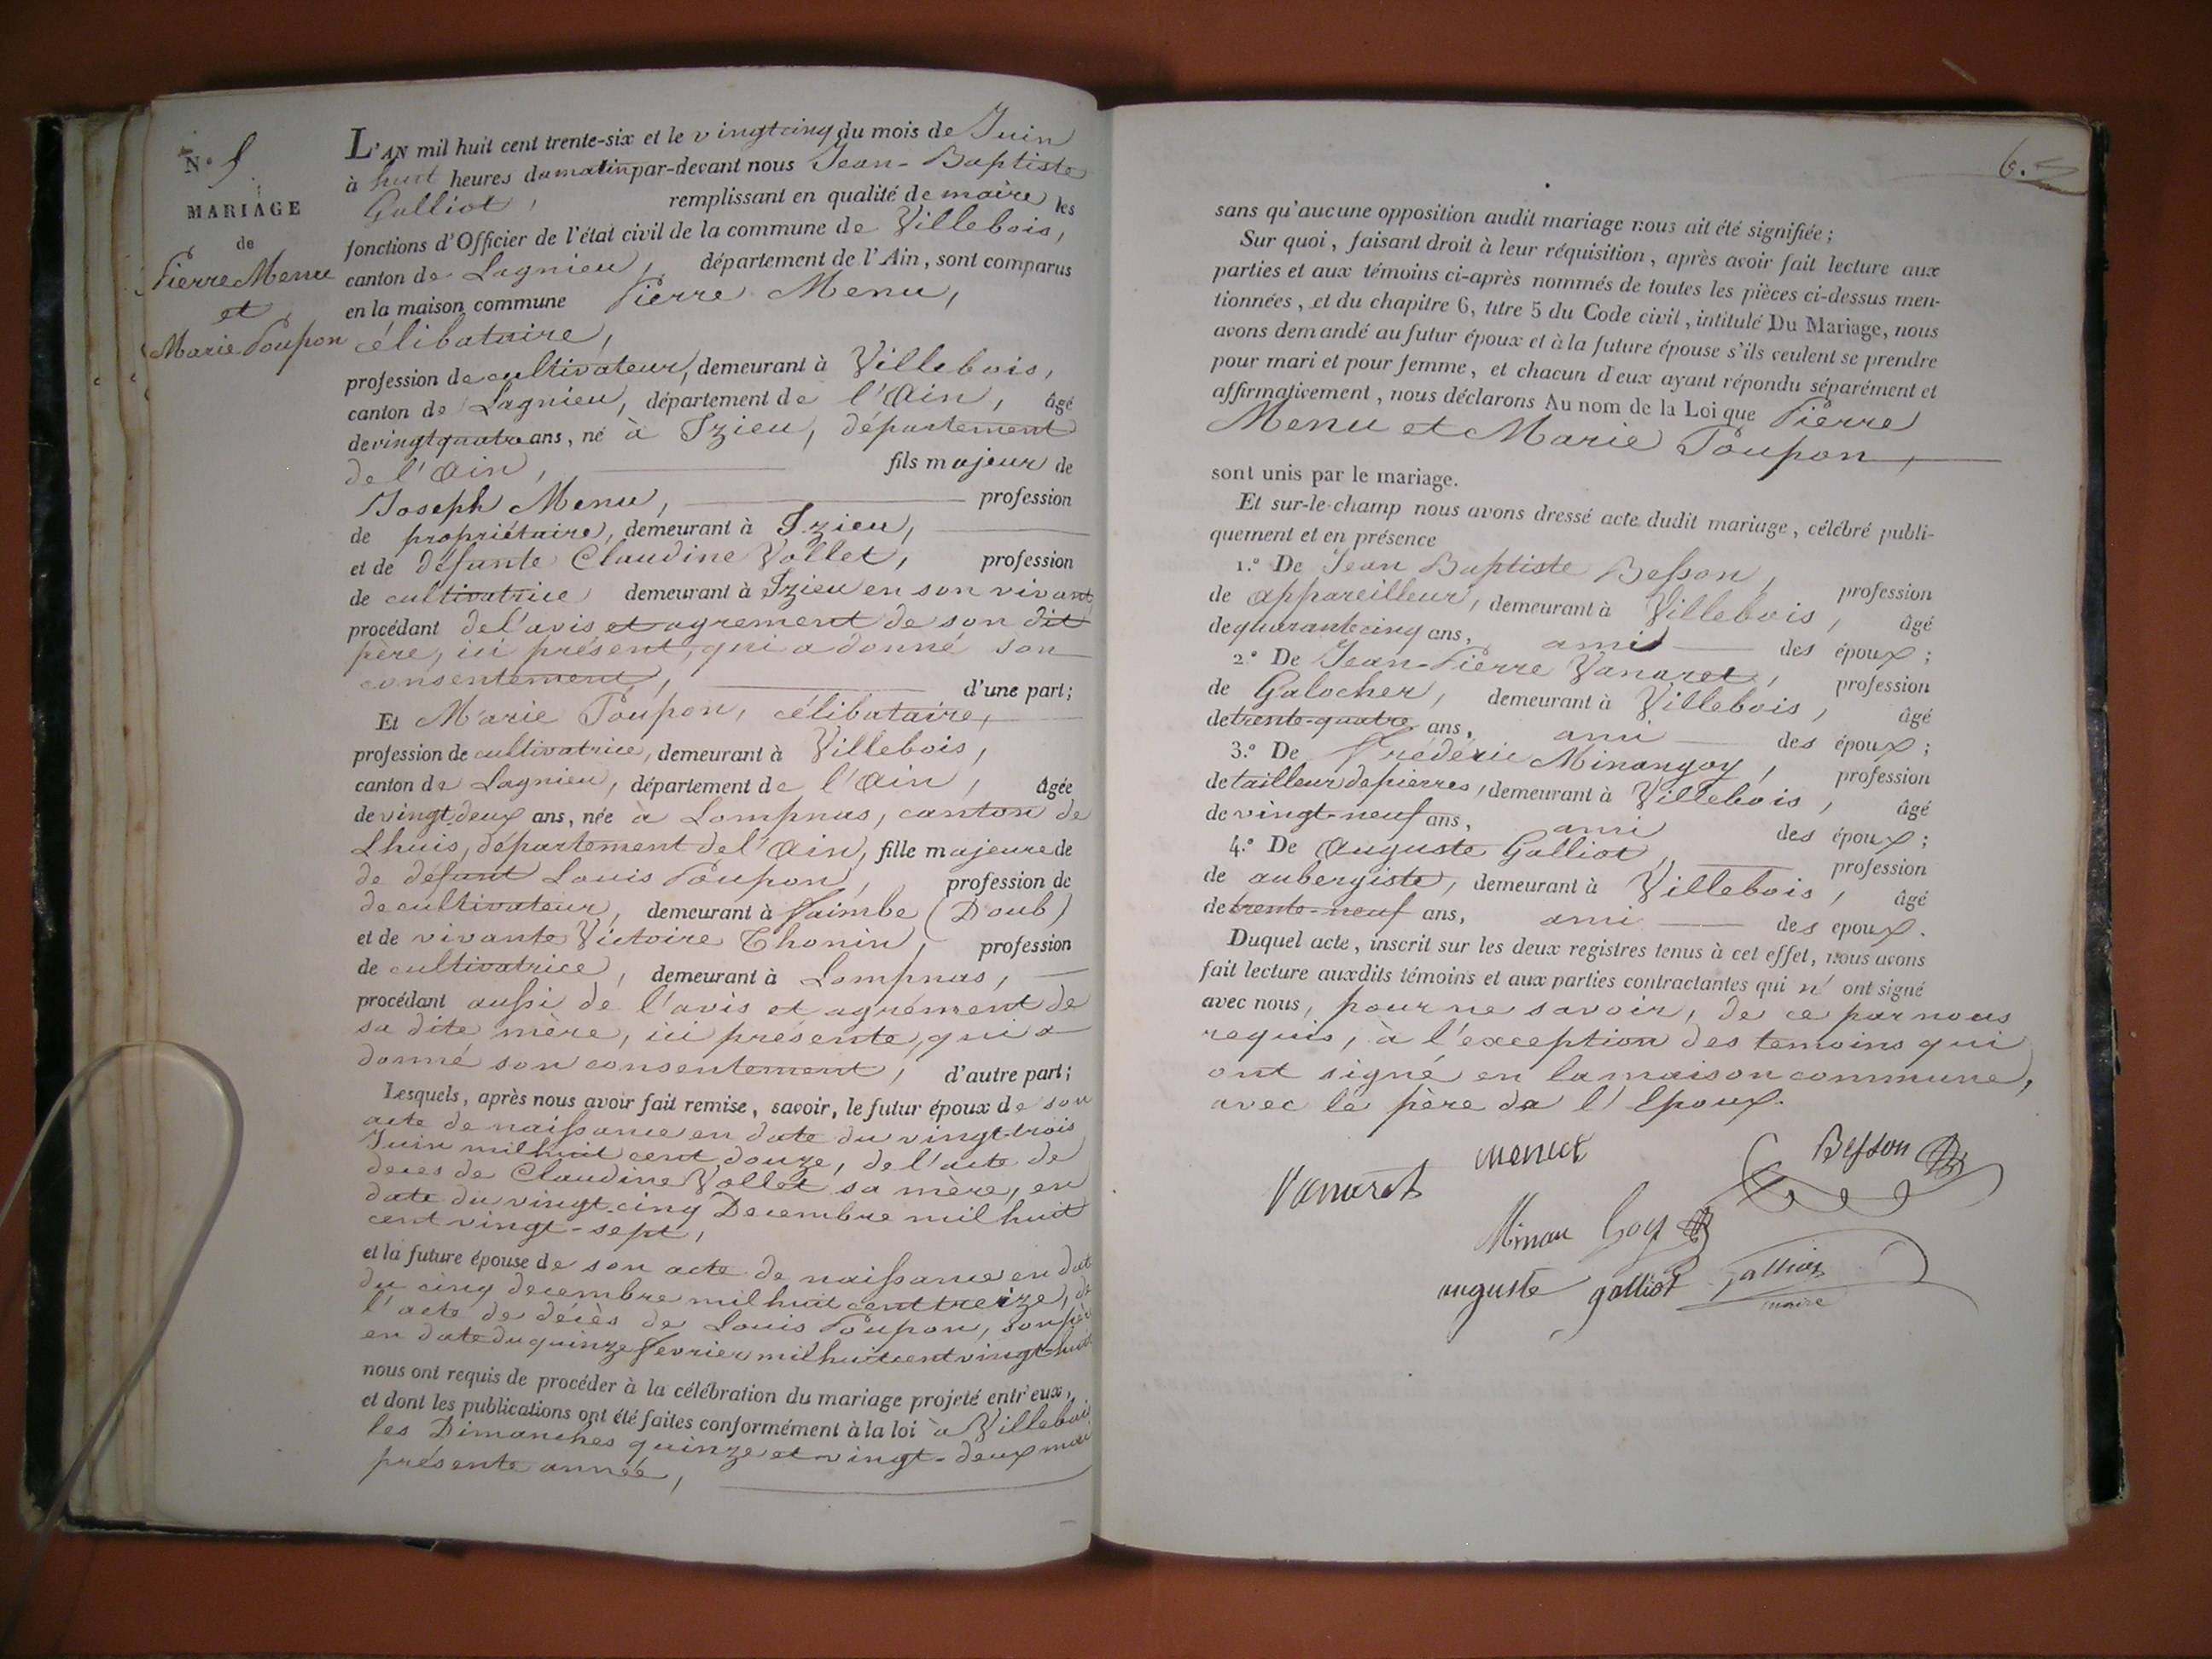 N.º 5.
MARIAGE
de
Pierre Menu
et
Marie Poupon
L'AN mil huit cent trente-six et le vingtcinq du mois de Juin
à huit heures du matin par-devant nous Jean-Baptiste
Galliot, remplissant en qualité de maire les
fonctions d'Officier de l'état civil de la commune de Villebois,
canton de Lagnieu, département de l'Ain, sont comparus
en la maison commune Pierre Menu,
célibataire,
profession de cultivateur, demeurant à Villebois,
canton de Lagnieu, département de l'Ain, âgé
de vingt quatre ans, né à Izieu, département
de l'Ain, fils majeur de
Joseph Menu, profession
de propriétaire, demeurant à Izieu,
et de défunte Claudine Vollet, profession
de cultivatrice demeurant à Izieu en son vivant
procédant de l'avis et agrement de son dit
père, ici présent, qui a donné son
consentement, d'une part;
Et Marie Poupon, célibataire,
profession de cultivatrice, demeurant à Villebois,
canton de Lagnieu, département de l'Ain, âgée
de vingt-deux ans, née à Lompnas, canton de
Lhuis, département de l'Ain, fille majeure de
de défunt Louis Poupon, profession de
de cultivateur, demeurant à Vaimbe (Doub)
et de vivante Victoire Thonin, profession
de cultivatrice, demeurant à Lompnas,
procédant aussi de l'avis et agrément de
sa dite mère, ici présente, qui a
donné son consentement, d'autre part;
Lesquels, après nous avoir fait remise, savoir, le futur époux de son
acte de naissance en date du vingt-trois
Juin mil huit cent douze, de l'acte de
deces de Claudine Vollet sa mère, en
date du vingt-cinq Decembre mil huit
cent vingt-sept,
et la future épouse de son acte de naissance en date
du cinq decembre mil huit cent treize, de
l'acte de décès de Louis Poupon, son père
en date du quinze fevrier mil huit cent vingt-huit
nous ont requis de procéder à la célébration du mariage projeté entr'eux,
et dont les publications ont été faites conformément à la loi à Villebois
les Dimanches quinze et vingt-deux mai
présente année,
6.
sans qu'aucune opposition audit mariage nous ait été signifiée;
Sur quoi, faisant droit à leur réquisition, après avoir fait lecture aux
parties et aux témoins ci-après nommés de toutes les pièces ci-dessus men-
tionnées, et du chapitre 6, titre 5 du Code civil, intitulé Du Mariage, nous
avons demandé au futur époux et à la future épouse s'ils veulent se prendre
pour mari et pour femme, et chacun d'eux ayant répondu séparément et
affirmativement, nous déclarons Au nom de la Loi que Pierre
Menu et Marie Poupon,
sont unis par le mariage.
Et sur-le-champ nous avons dressé acte dudit mariage, célébré publi-
quement et en présence
1.º De Jean Baptiste Besson, profession
de appareilleur, demeurant à Villebois, âgé
de quarante cinq ans, ami des époux;
2.º De Jean-Pierre Vanaret, profession
de Galocher, demeurant à Villebois, âgé
de trente-quatre ans, ami des époux;
3.º De Frédéric Minangoy, profession
de tailleur de pierres, demeurant à Villebois, âgé
de vingt-neuf ans, ami des époux;
4.º De Auguste Galliot, profession
de aubergiste, demeurant à Villebois, âgé
de trente-neuf ans, ami des epoux.
Duquel acte, inscrit sur les deux registres tenus à cet effet, nous avons
fait lecture auxdits témoins et aux parties contractantes qui n'ont signé
avec nous, pour ne savoir, de ce par nous
requis, à l'exception des temoins qui
ont signé en la maison commune,
avec le père de l'Epoux.
menut Besson
Vanaret
Minan Goy
auguste galliot Galliot
maire